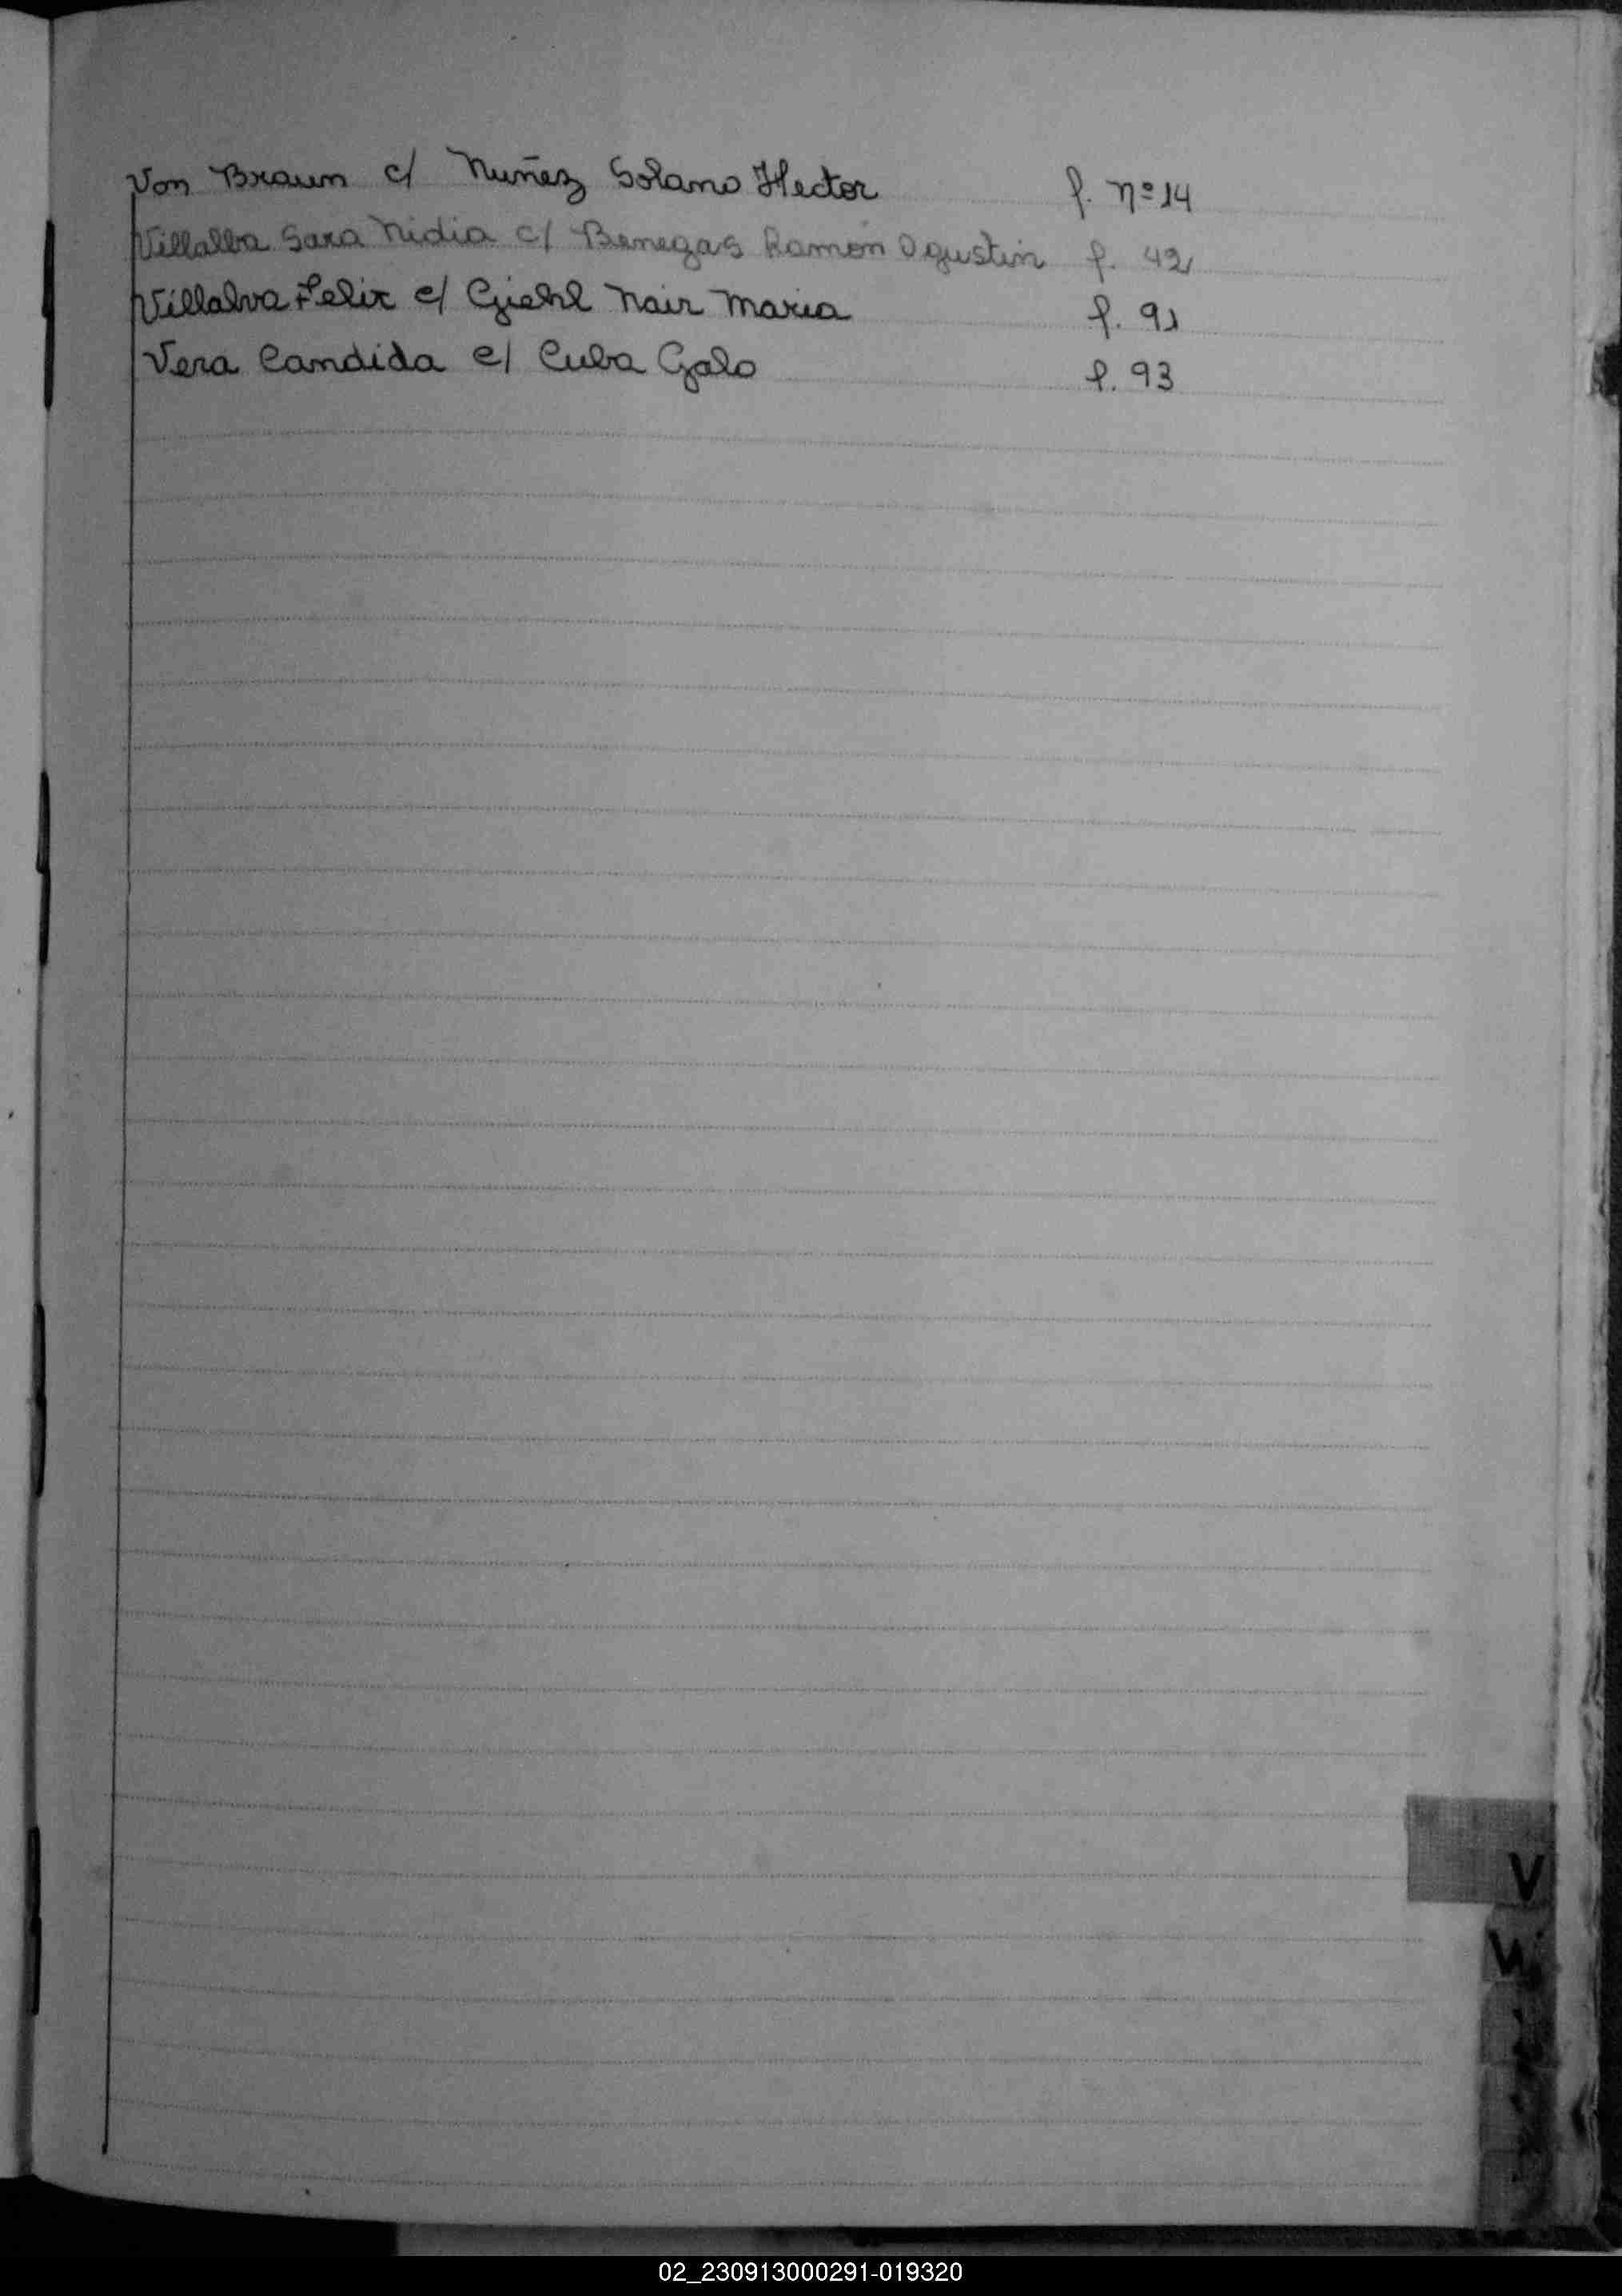 Von Braun c/ Nuñez Solano Hector f. nº 14
Villalba Sara Nidia c/ Benegas Ramón Agustin f. 42
Villalva Felix c/ Giehl Nair Maria f. 91
Vera Candida c/ Cuba Galo f. 93
V
W
02_230913000291-019320